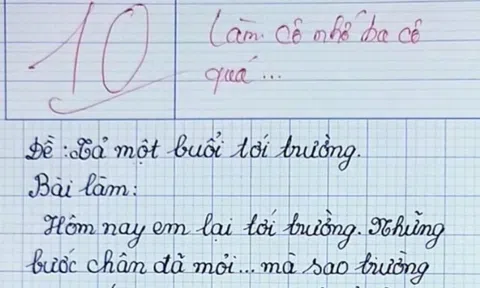 10
Làm cô nhớ ba cô
quá...
Đề: Tả một buổi tới trường.
Bài làm:
Hôm nay em lại tới trường. Những
bước chân đã mỏi... mà sao trường